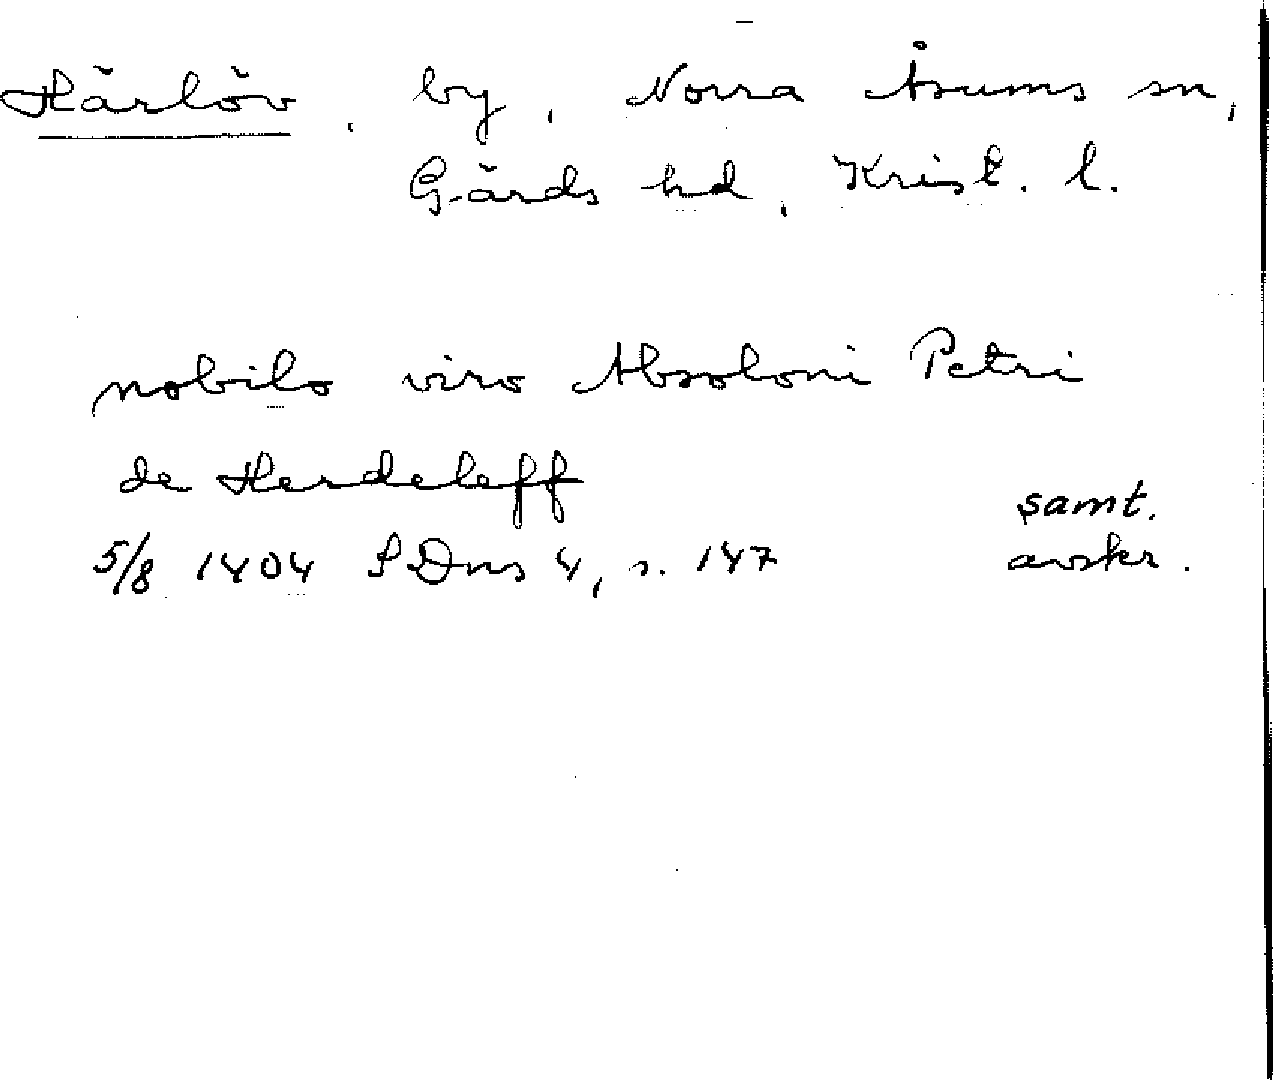 Härlöv, by, Norra Åsums sn,
Gärds hd, Krist. l.
nobilo viro Absoloni Petri
de Herdeleff
samt.
5/8 1404 SDns 4, s. 147 avskr.